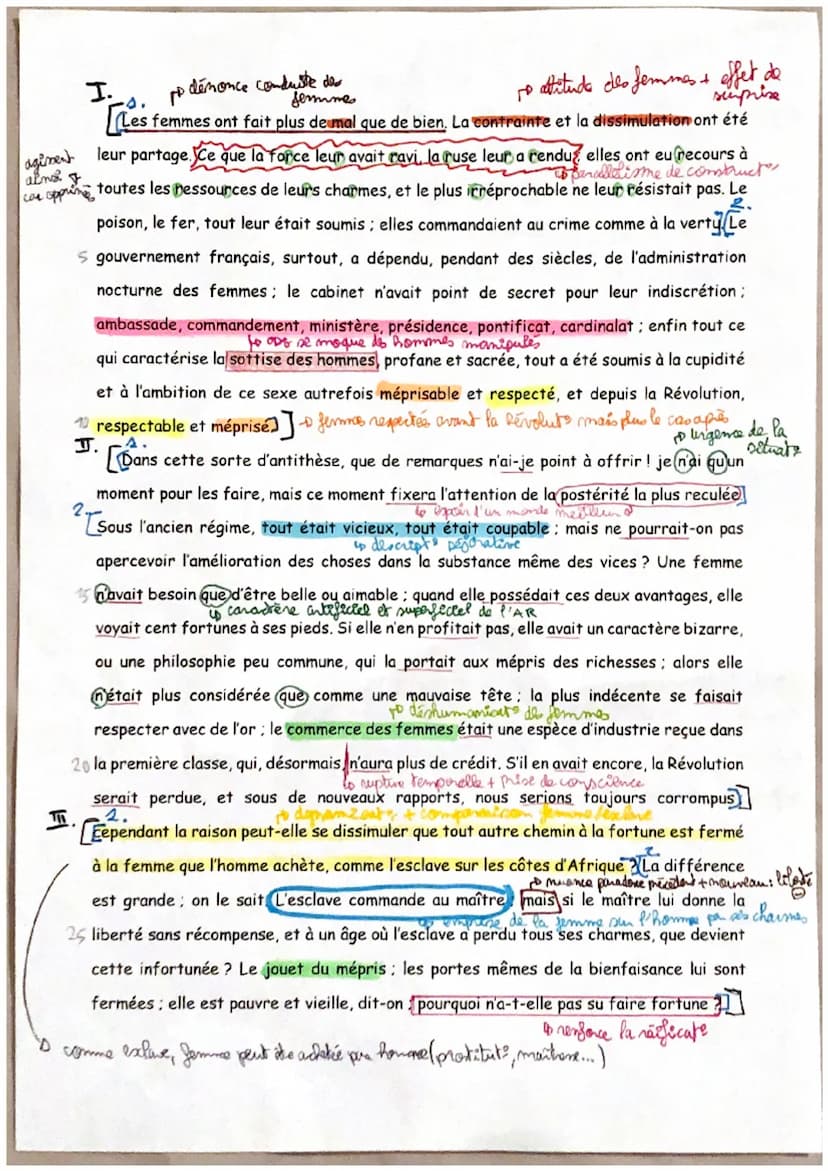 I. 1. ↳ dénonce conduite des femmes ↳ attitude des femmes + effet de surprise
[Les femmes ont fait plus de mal que de bien. La contrainte et la dissimulation ont été
leur partage. Ce que la force leur avait ravi, la ruse leur a rendu; elles ont eu recours à
agissent ainsi car opprimées
↳ parallélisme de construct°
toutes les ressources de leurs charmes, et le plus irréprochable ne leur résistait pas. Le
2.
poison, le fer, tout leur était soumis ; elles commandaient au crime comme à la vertu.][Le
5 gouvernement français, surtout, a dépendu, pendant des siècles, de l'administration
nocturne des femmes ; le cabinet n'avait point de secret pour leur indiscrétion ;
ambassade, commandement, ministère, présidence, pontificat, cardinalat ; enfin tout ce
↳ ODG se moque des hommes manipulés
qui caractérise la sottise des hommes, profane et sacrée, tout a été soumis à la cupidité
et à l'ambition de ce sexe autrefois méprisable et respecté, et depuis la Révolution,
10 respectable et méprisé.] ↳ femmes respectées avant la Révolut° mais plus le cas après
II. 1. ↳ urgence de la situat°
[Dans cette sorte d'antithèse, que de remarques n'ai-je point à offrir ! je n'ai qu'un
moment pour les faire, mais ce moment fixera l'attention de la postérité la plus reculée.]
2. ↳ espoir d'un monde meilleur
[Sous l'ancien régime, tout était vicieux, tout était coupable ; mais ne pourrait-on pas
↳ descript° péjorative
apercevoir l'amélioration des choses dans la substance même des vices ? Une femme
15 n'avait besoin que d'être belle ou aimable ; quand elle possédait ces deux avantages, elle
↳ caractère artificiel et superficiel de l'AR
voyait cent fortunes à ses pieds. Si elle n'en profitait pas, elle avait un caractère bizarre,
ou une philosophie peu commune, qui la portait aux mépris des richesses ; alors elle
n'était plus considérée que comme une mauvaise tête ; la plus indécente se faisait
↳ déshumanisat° des femmes
respecter avec de l'or ; le commerce des femmes était une espèce d'industrie reçue dans
20 la première classe, qui, désormais, n'aura plus de crédit. S'il en avait encore, la Révolution
↳ rupture temporelle + prise de conscience
serait perdue, et sous de nouveaux rapports, nous serions toujours corrompus]
III. 1. + comparaison femme/esclave
[Cependant la raison peut-elle se dissimuler que tout autre chemin à la fortune est fermé
2.
à la femme que l'homme achète, comme l'esclave sur les côtes d'Afrique ?][La différence
↳ nuance paradoxe précédent + nouveau : liberté ⊖
est grande ; on le sait. L'esclave commande au maître ; mais si le maître lui donne la
↳ emprise de la femme sur l'homme par ses charmes
25 liberté sans récompense, et à un âge où l'esclave a perdu tous ses charmes, que devient
cette infortunée ? Le jouet du mépris ; les portes mêmes de la bienfaisance lui sont
fermées ; elle est pauvre et vieille, dit-on ; pourquoi n'a-t-elle pas su faire fortune ?]
↳ renforce la réificat°
comme esclave, femme peut être achetée par homme (prostitut°, maîtresse...)